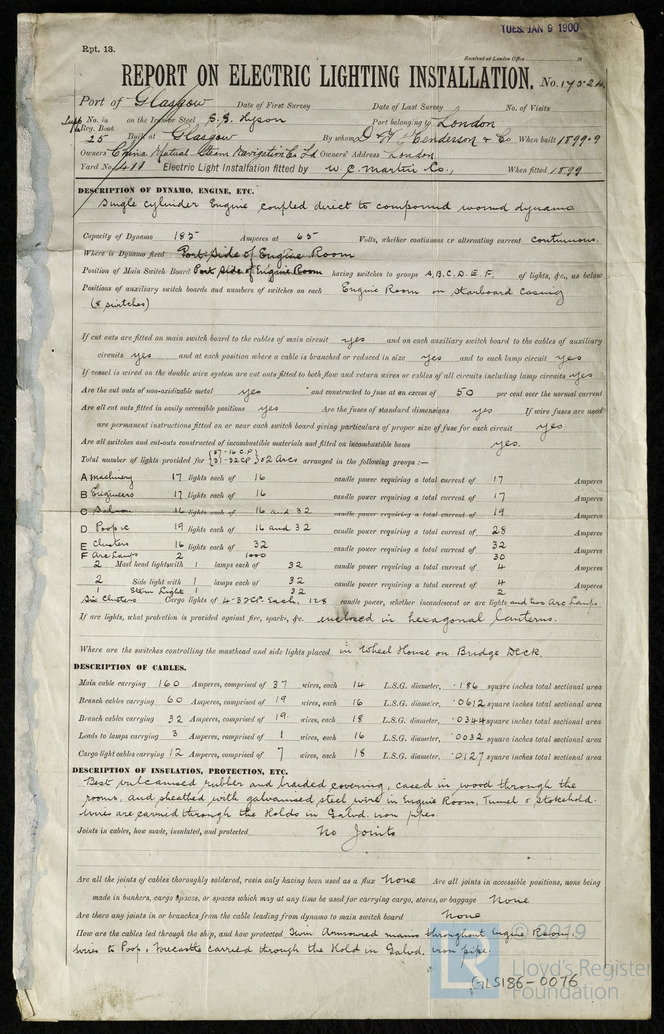 TUES. JAN 9 1900
Rpt. 13.
Received at London Office 18
REPORT ON ELECTRIC LIGHTING INSTALLATION. No. 17524
Port of Glasgow Date of First Survey Date of Last Survey No. of Visits
No. in Reg. Book on the Iron or Steel S.S. Hyson Port belonging to London
25 Built at Glasgow By whom D & W Henderson & Co When built 1899-9
Owners China Mutual Steam Navigation Co Ld Owners' Address London
Yard No. 411 Electric Light Installation fitted by W. C. Martin & Co., When fitted 1899
DESCRIPTION OF DYNAMO, ENGINE, ETC.
Single Cylinder Engine coupled direct to compound wound dynamo
Capacity of Dynamo 185 Amperes at 65 Volts, whether continuous or alternating current continuous.
Where is Dynamo fixed Port Side of Engine Room
Position of Main Switch Board Port Side of Engine Room having switches to groups A, B, C, D, E, F. of lights, &c., as below
Positions of auxiliary switch boards and numbers of switches on each Engine Room on starboard casing
(8 switches)
If cut outs are fitted on main switch board to the cables of main circuit yes and on each auxiliary switch board to the cables of auxiliary
circuits yes and at each position where a cable is branched or reduced in size yes and to each lamp circuit yes
If vessel is wired on the double wire system are cut outs fitted to both flow and return wires or cables of all circuits including lamp circuits yes
Are the cut outs of non-oxidizable metal yes and constructed to fuse at an excess of 50 per cent over the normal current
Are all cut outs fitted in easily accessible positions yes Are the fuses of standard dimensions yes If wire fuses are used
are permanent instructions fitted on or near each switch board giving particulars of proper size of fuse for each circuit yes
Are all switches and cut-outs constructed of incombustible materials and fitted on incombustible bases yes.
Total number of lights provided for 31-32CP & 2 Arcs arranged in the following groups :—
A Machinery 17 lights each of 16 candle power requiring a total current of 17 Amperes
B Engineers 17 lights each of 16 candle power requiring a total current of 17 Amperes
C Saloon 16 lights each of 16 and 32 candle power requiring a total current of 19 Amperes
D Poop &c 19 lights each of 16 and 32 candle power requiring a total current of 28 Amperes
E Clusters 16 lights each of 32 candle power requiring a total current of 32 Amperes
F Arc Lamps 2 1000 30
2 Mast head lights with 1 lamps each of 32 candle power requiring a total current of 4 Amperes
2 Side light with 1 lamps each of 32 candle power requiring a total current of 4 Amperes
Stern Light 1 32 2
Six Clusters Cargo lights of 4-32CP. Each, 128 candle power, whether incandescent or arc lights and two Arc Lamps
If arc lights, what protection is provided against fire, sparks, &c. enclosed in hexagonal lanterns.
Where are the switches controlling the masthead and side lights placed in Wheel House on Bridge Deck
DESCRIPTION OF CABLES.
Main cable carrying 160 Amperes, comprised of 37 wires, each 14 L.S.G. diameter, .186 square inches total sectional area
Branch cables carrying 60 Amperes, comprised of 19 wires, each 16 L.S.G. diameter, .0612 square inches total sectional area
Branch cables carrying 32 Amperes, comprised of 19 wires, each 18 L.S.G. diameter, .0344 square inches total sectional area
Leads to lamps carrying 3 Amperes, comprised of 1 wires, each 16 L.S.G. diameter, .0032 square inches total sectional area
Cargo light cables carrying 12 Amperes, comprised of 7 wires, each 18 L.S.G. diameter, .0127 square inches total sectional area
DESCRIPTION OF INSULATION, PROTECTION, ETC.
Best vulcanised rubber and braided covering, cased in wood through the
rooms, and sheathed with galvanised steel wire in Engine Room, Tunnel & Stokehold.
Wires are carried through the Holds in Galvd. iron pipes.
Joints in cables, how made, insulated, and protected No Joints
Are all the joints of cables thoroughly soldered, resin only having been used as a flux None Are all joints in accessible positions, none being
made in bunkers, cargo spaces, or spaces which may at any time be used for carrying cargo, stores, or baggage None
Are there any joints in or branches from the cable leading from dynamo to main switch board None
How are the cables led through the ship, and how protected Twin Armoured mains throughout Engine Room.
Wires to Poop & Forecastle carried through the Hold in Galvd. iron pipe.
© 2019
LR
Lloyd's Register
Foundation
GLS186-0076